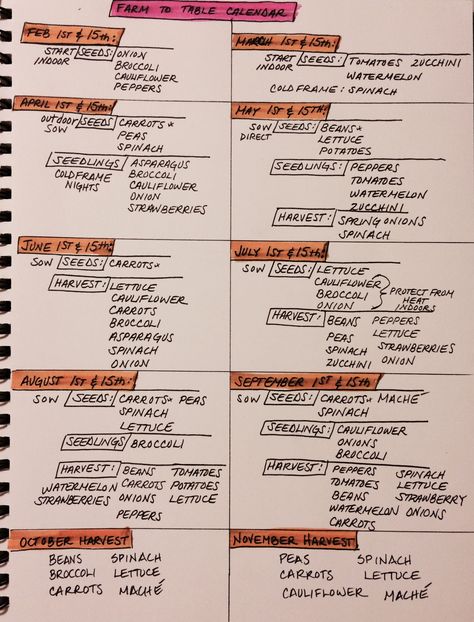 FARM TO TABLE CALENDAR
FEB 1ST & 15TH:
START INDOOR
SEEDS: ONION
BROCCOLI
CAULIFLOWER
PEPPERS
MARCH 1ST & 15TH:
START INDOOR
SEEDS: TOMATOES ZUCCHINI
WATERMELON
COLD FRAME: SPINACH
APRIL 1ST & 15TH:
OUTDOOR SOW
SEEDS CARROTS*
PEAS
SPINACH
SEEDLINGS ASPARAGUS
COLDFRAME NIGHTS
BROCCOLI
CAULIFLOWER
ONION
STRAWBERRIES
MAY 1ST & 15TH:
SOW DIRECT
SEEDS: BEANS*
LETTUCE
POTATOES
SEEDLINGS: PEPPERS
TOMATOES
WATERMELON
ZUCCHINI
HARVEST: SPRING ONIONS
SPINACH
JUNE 1ST & 15TH:
SOW SEEDS: CARROTS*
HARVEST: LETTUCE
CAULIFLOWER
CARROTS
BROCCOLI
ASPARAGUS
SPINACH
ONION
JULY 1ST & 15TH:
SOW SEEDS: LETTUCE
CAULIFLOWER
BROCCOLI
ONION
PROTECT FROM
HEAT
INDOORS
HARVEST: BEANS PEPPERS
PEAS LETTUCE
SPINACH STRAWBERRIES
ZUCCHINI ONION
AUGUST 1ST & 15TH:
SOW SEEDS: CARROTS* PEAS
SPINACH
LETTUCE
SEEDLINGS BROCCOLI
HARVEST: BEANS TOMATOES
WATERMELON CARROTS POTATOES
STRAWBERRIES ONIONS LETTUCE
PEPPERS
SEPTEMBER 1ST & 15TH:
SOW SEEDS: CARROTS* MACHÉ
SPINACH
SEEDLINGS: CAULIFLOWER
ONIONS
BROCCOLI
HARVEST: PEPPERS SPINACH
TOMATOES LETTUCE
BEANS STRAWBERRY
WATERMELON ONIONS
CARROTS
OCTOBER HARVEST
BEANS SPINACH
BROCCOLI LETTUCE
CARROTS MACHÉ
NOVEMBER HARVEST
PEAS SPINACH
CARROTS LETTUCE
CAULIFLOWER MACHÉ